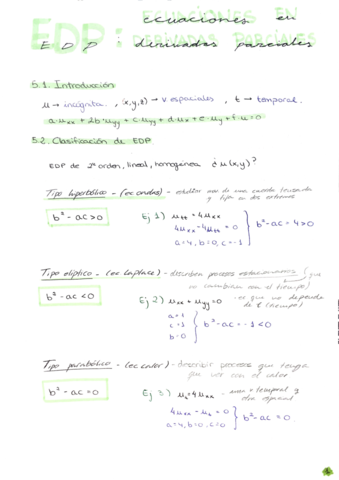 ECUACIONES EN
EDP: DERIVADAS PARCIALES
5.1. Introducción
u → incógnita, (x,y,z) → v espaciales, t → temporal
a·uxx + 2b·uyy + c·uyy + d·ux + e·uy + f·u = 0
5.2. Clasificación de EDP
EDP de 2º orden, lineal, homogénea ¿u(x,y)?
Tipo hiperbólico - (ec ondas) - estudiar mov de una cuerda tensada
y fija a dos extremos
b² - ac > 0
Ej 1) utt = 4uxx
4uxx - utt = 0
a = 4, b = 0, c = -1
b² - ac = 4 > 0
Tipo elíptico - (ec Laplace) - describen procesos estacionarios (que
no cambian con el tiempo)
b² - ac < 0
Ej 2) uxx + uyy = 0 - ec que no depende
de t (tiempo)
a = 1
c = 1
b = 0
b² - ac = -1 < 0
Tipo parabólico - (ec calor) - describir procesos que tenga
que ver con el calor
b² - ac = 0
Ej 3) ut = 4uxx - una temporal y
otra espacial
4uxx - ut = 0
a = 4, b = 0, c = 0
b² - ac = 0